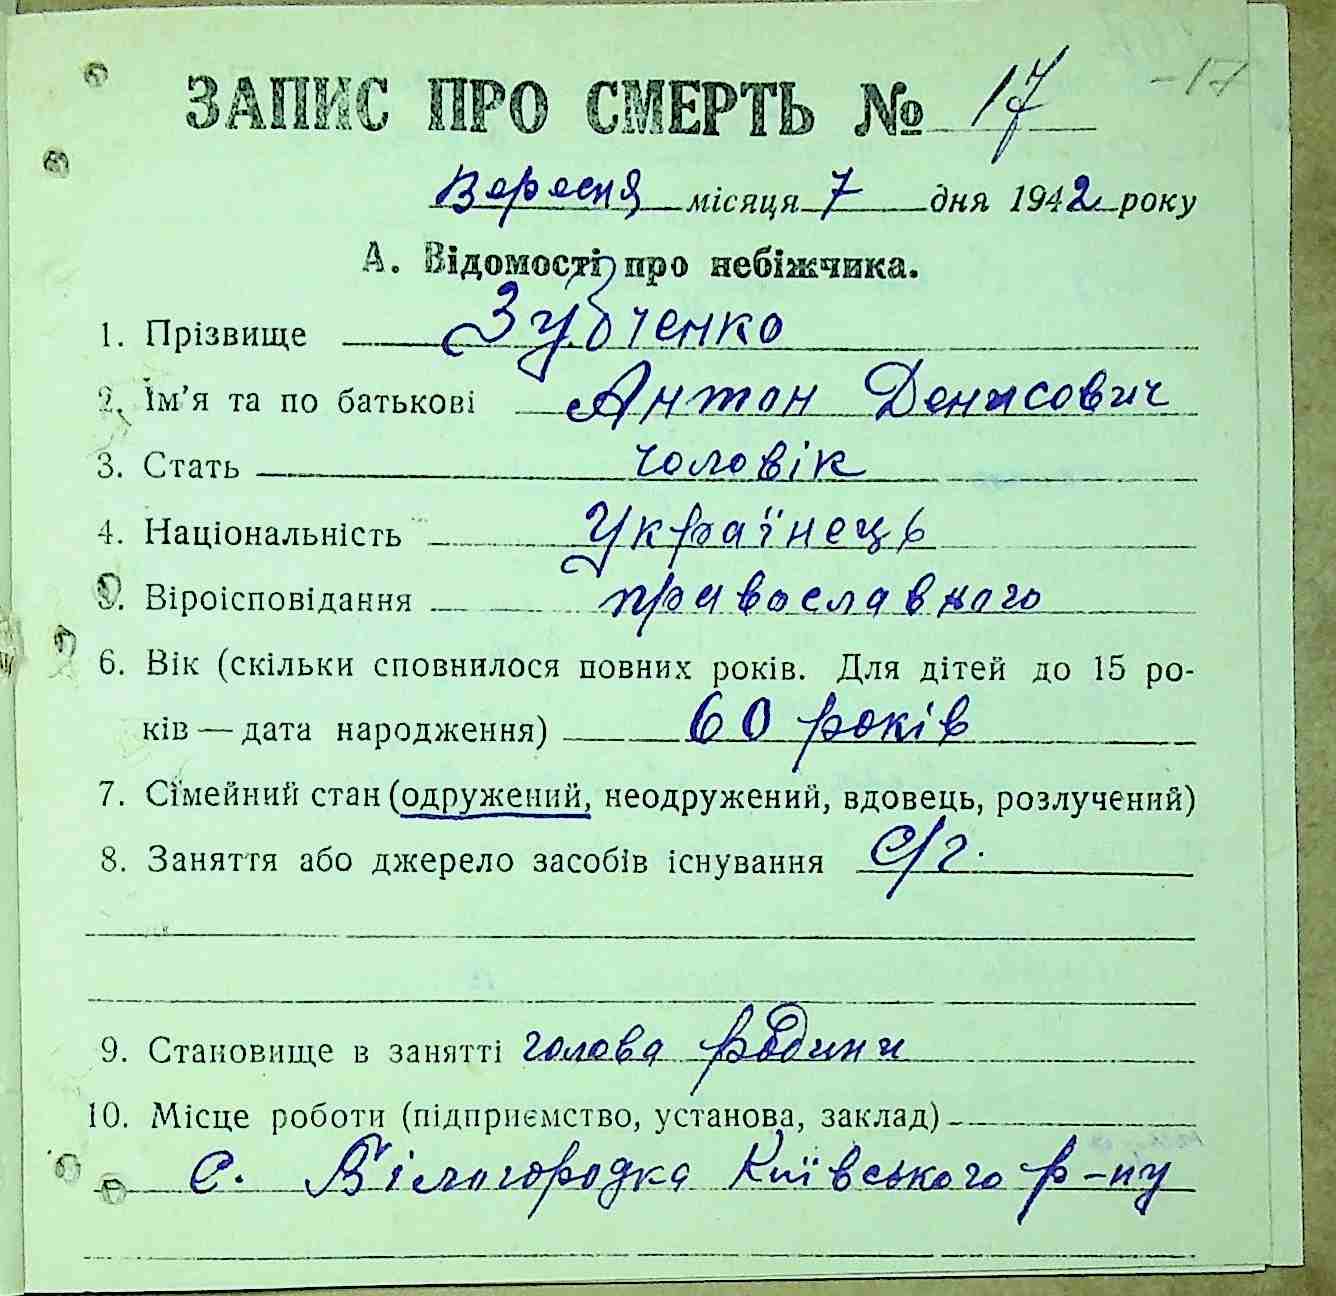 ЗАПИС ПРО СМЕРТЬ № 17
-17
Вересня місяця 7 дня 1942 року
А. Відомості про небіжчика.
1. Прізвище Зубченко
2. Ім'я та по батькові Антон Денисович
3. Стать чоловік
4. Національність Українець
5. Віроісповідання православного
6. Вік (скільки сповнилося повних років. Для дітей до 15 ро-
ків — дата народження) 60 років
7. Сімейний стан (одружений, неодружений, вдовець, розлучений)
8. Заняття або джерело засобів існування с/г.
9. Становище в занятті голова родини
10. Місце роботи (підприємство, установа, заклад)
с. Білогородка Київського р-ну